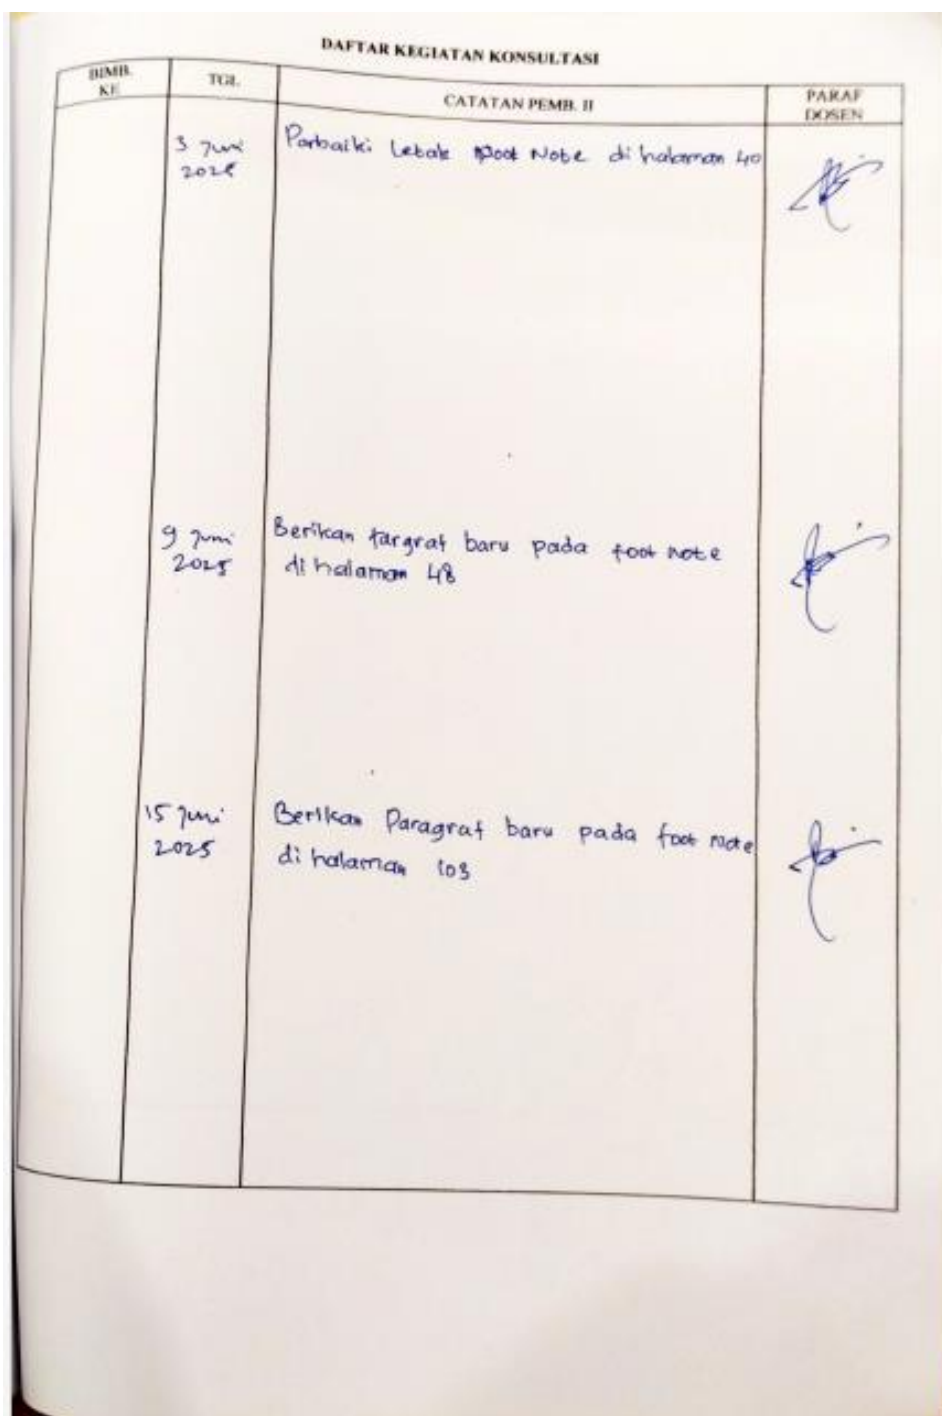 DAFTAR KEGIATAN KONSULTASI
BIMB. KE
TGL.
CATATAN PEMB. II
PARAF DOSEN
3 Juni 2025
Parbaiki Letak Foot Note di halaman 40
9 Juni 2025
Berikan targraf baru pada foot note
di halaman 48
15 Juni 2025
Berikan Paragraf baru pada foot note
di halaman 103